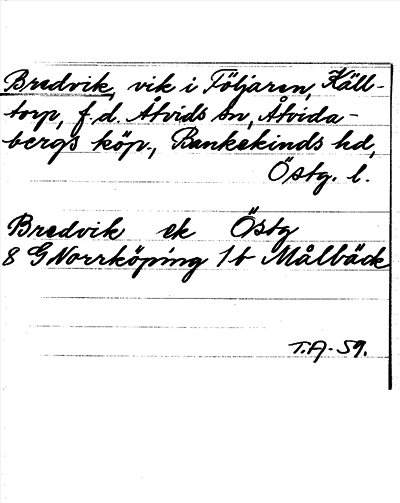 Bredvik, vik i Följaren, Käll-
torp, f.d. Åtvids sn, Åtvida-
bergs köp., Bankekinds hd,
Östg. l.
Bredvik ek Östg
8 G Norrköping 1b Målbäck
T.A-59.